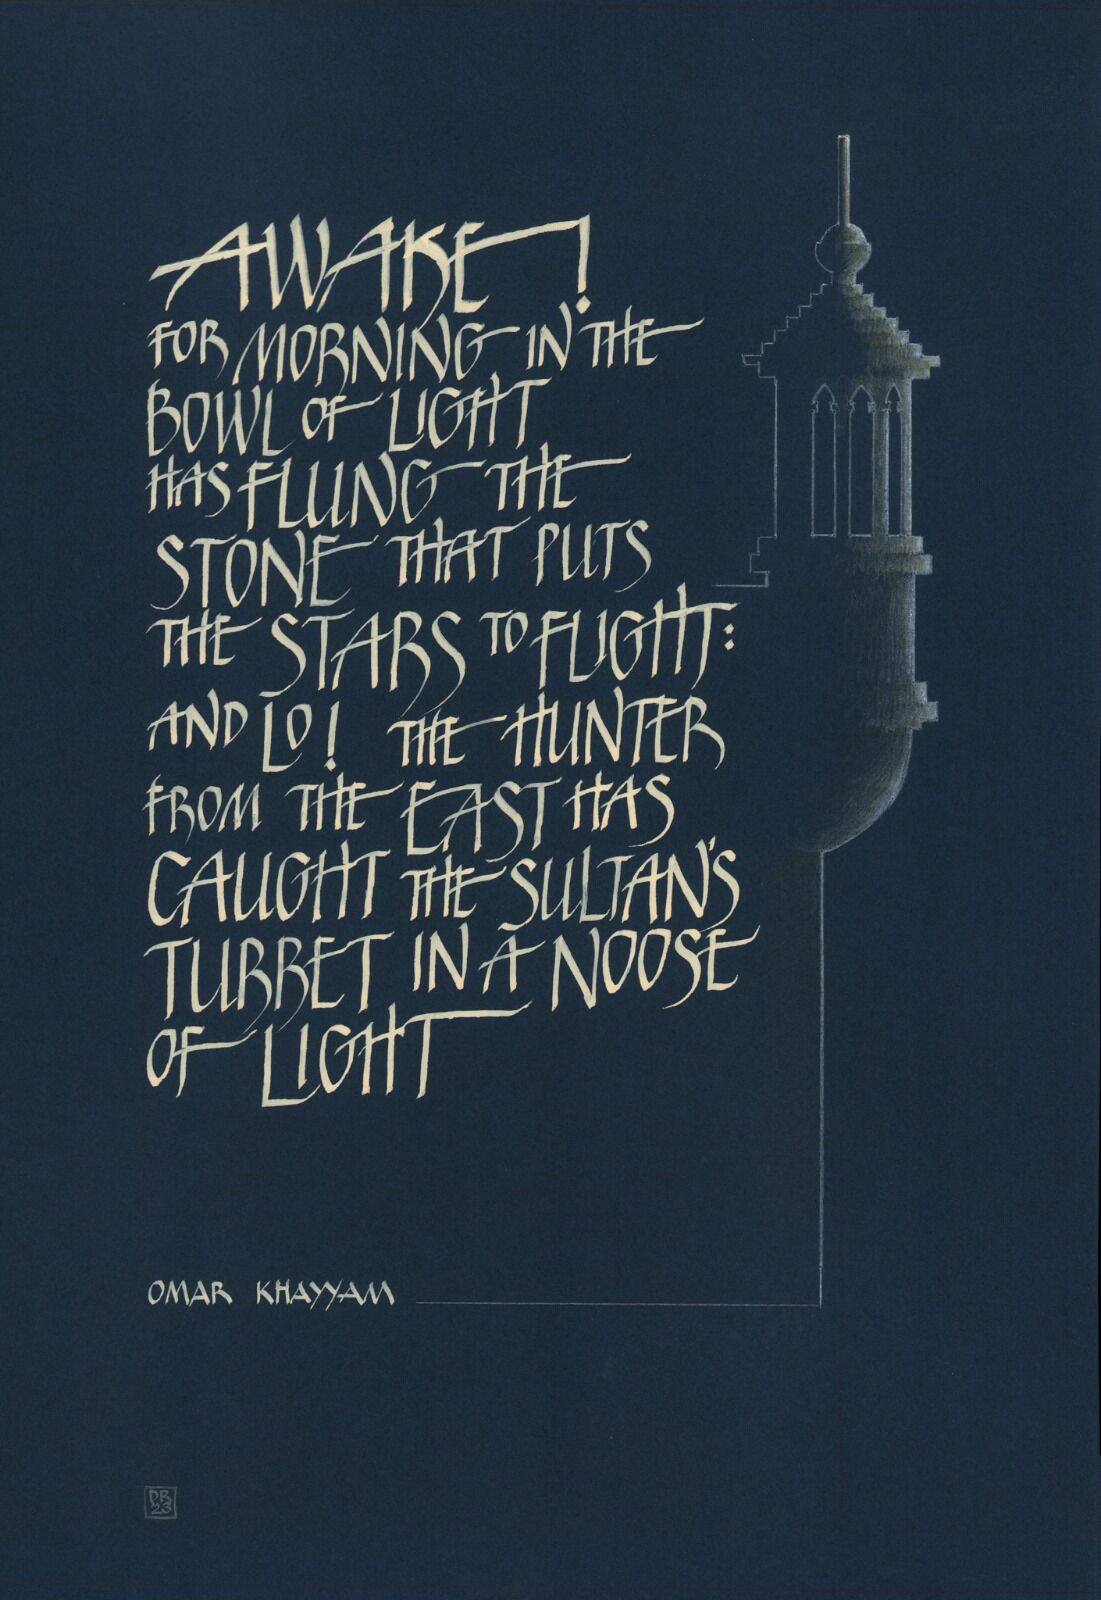 AWAKE!
FOR MORNING IN THE
BOWL OF LIGHT
HAS FLUNG THE
STONE THAT PUTS
THE STARS TO FLIGHT:
AND LO! THE HUNTER
FROM THE EAST HAS
CAUGHT THE SULTAN'S
TURRET IN A NOOSE
OF LIGHT
OMAR KHAYYAM
PR
'23